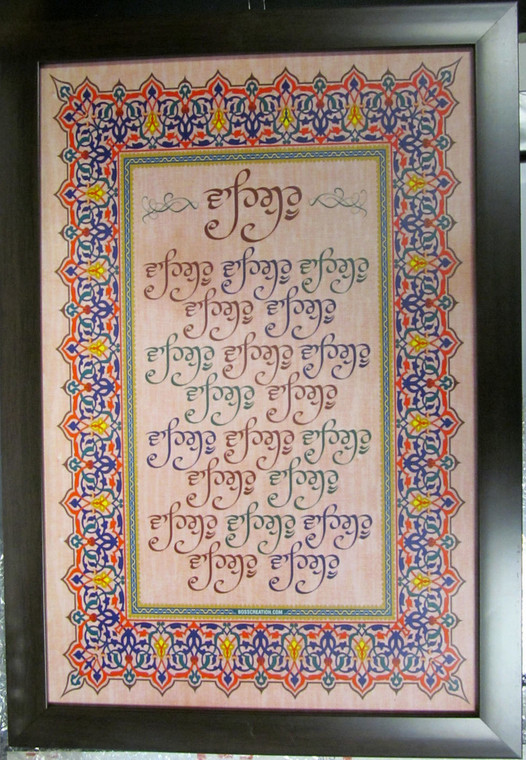 ਵਾਹਿਗੁਰੂ
ਵਾਹਿਗੁਰੂ ਵਾਹਿਗੁਰੂ ਵਾਹਿਗੁਰੂ
ਵਾਹਿਗੁਰੂ ਵਾਹਿਗੁਰੂ
ਵਾਹਿਗੁਰੂ ਵਾਹਿਗੁਰੂ ਵਾਹਿਗੁਰੂ
ਵਾਹਿਗੁਰੂ ਵਾਹਿਗੁਰੂ
ਵਾਹਿਗੁਰੂ ਵਾਹਿਗੁਰੂ ਵਾਹਿਗੁਰੂ
ਵਾਹਿਗੁਰੂ ਵਾਹਿਗੁਰੂ
ਵਾਹਿਗੁਰੂ ਵਾਹਿਗੁਰੂ ਵਾਹਿਗੁਰੂ
ਵਾਹਿਗੁਰੂ ਵਾਹਿਗੁਰੂ
BOSSCREATION.COM